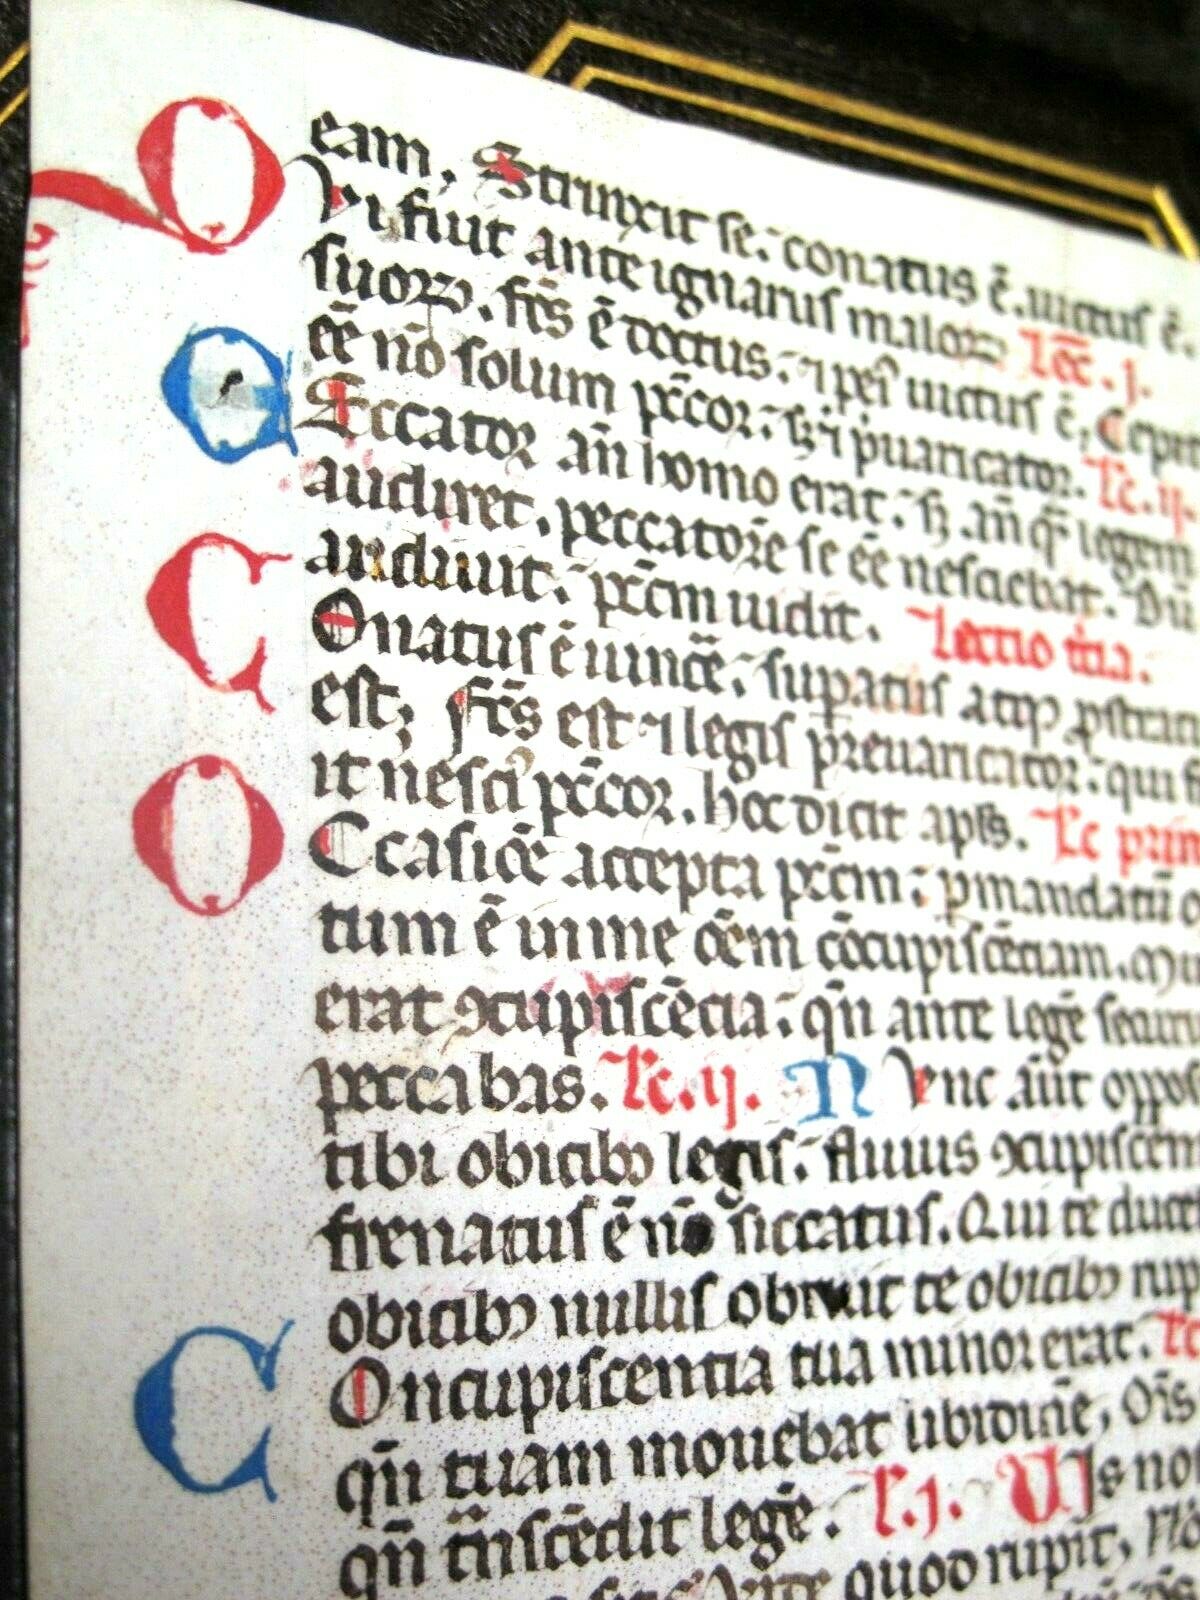 eam. Strinxit se: conatus ē. uictus ē.
Vi fuit ante ignarus maloꝝ Lēc. j.
suoꝝ. fc̄s ē doctus: ⁊ pctī uictus ē. Cepit
ēē nō solum pc̄cor: sꝫ ⁊ p̄uaricator. Lc. ij.
Eccator an̄ homo erat: sꝫ an̄ qͣ legem
audiret. peccatorē se ēē nesciebat. Dū
audiuit: pc̄cm uidit. Lectio tc̄ia.
Onatus ē uincē: suꝑatus atqꝫ ꝓstrat
est; fc̄s est ⁊ legis preuaricator: qui f
it nesciꝰ pc̄cor. hoc dicit apl̄s. Lc prim
Ccasiōe accepta pc̄cm: ꝑ mandatū o
tum ē in me ōem cōcupiscētiam.
erat ꝯcupiscētia: qn̄ ante legē secur
peccabas. Lc. ij. N Vnc aūt oppos
tibi obicibꝫ legis: fluuius ꝯcupiscen
frenatus ē nō siccatus. Qui te duce
obicibꝫ nullis obruit te obicibꝫ rup
C Oncupiscentia tua minor erat. Lc
qn̄ tuam mouebat libidinē, Oīs
qn̄ tn̄scēdit legē. L. j. VJs no
quod rupit,